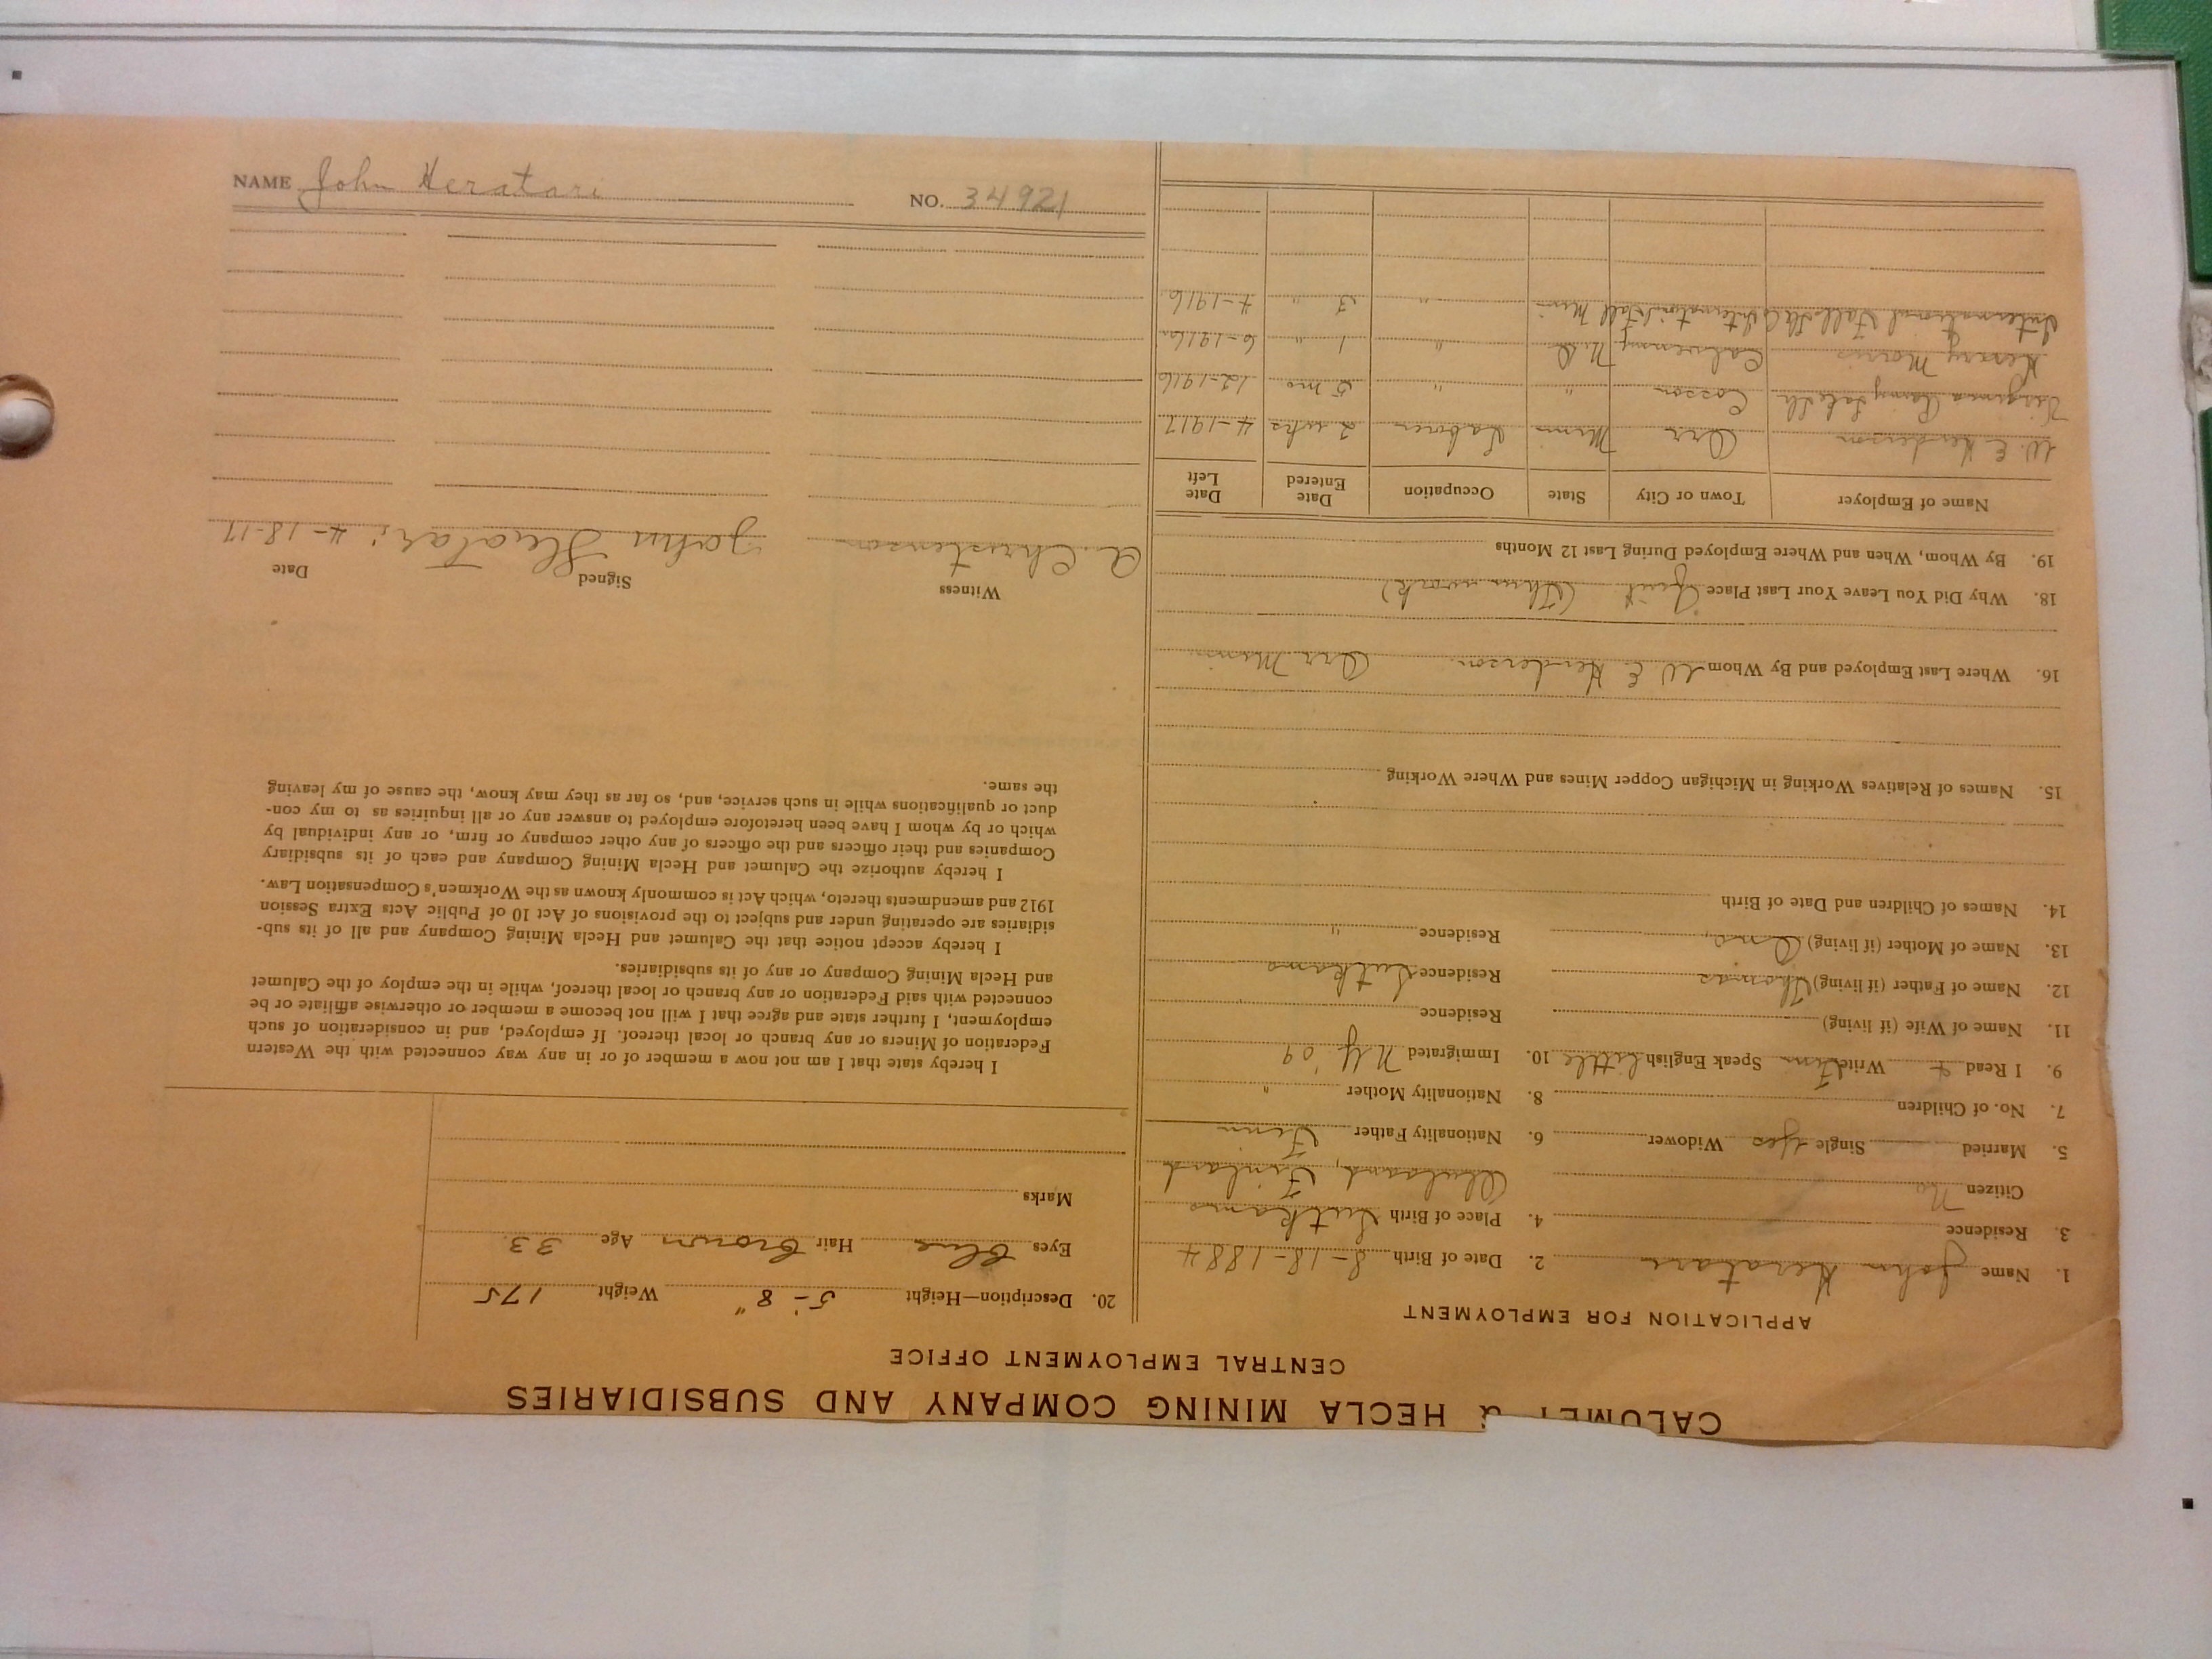 CALUMET & HECLA MINING COMPANY AND SUBSIDIARIES
CENTRAL EMPLOYMENT OFFICE
APPLICATION FOR EMPLOYMENT
1. Name John Keratari 2. Date of Birth 8-18-1884
3. Residence 4. Place of Birth Sutkamo
Citizen No Finland
5. Married Single Yes Widower 6. Nationality Father Finn
7. No. of Children 8. Nationality Mother "
9. I Read + Write Finn Speak English little 10. Immigrated N.Y. '09
11. Name of Wife (if living) Residence
12. Name of Father (if living) Thomas Residence Sutkamo
13. Name of Mother (if living) Residence "
14. Names of Children and Date of Birth
15. Names of Relatives Working in Michigan Copper Mines and Where Working
16. Where Last Employed and By Whom W. E. Henderson. Orr Minn.
18. Why Did You Leave Your Last Place Quit
19. By Whom, When and Where Employed During Last 12 Months
Name of Employer Town or City State Occupation Date Entered Date Left
W. E. Henderson Orr Minn Laborer 2 wks 4-1917
Virginia Rainy Lake Cusson " " 5 mo 12-1916
Morris N.D. " 1 " 6-1916
International Falls International Fall Minn " 3 " 4-1916
20. Description—Height 5'-8" Weight 175
Eyes Blue Hair Brown Age 33
Marks
I hereby state that I am not now a member of or in any way connected with the Western
Federation of Miners or any branch or local thereof. If employed, and in consideration of such
employment, I further state and agree that I will not become a member or otherwise affiliate or be
connected with said Federation or any branch or local thereof, while in the employ of the Calumet
and Hecla Mining Company or any of its subsidiaries.
I hereby accept notice that the Calumet and Hecla Mining Company and all of its sub-
sidiaries are operating under and subject to the provisions of Act 10 of Public Acts Extra Session
1912 and amendments thereto, which Act is commonly known as the Workmen's Compensation Law.
I hereby authorize the Calumet and Hecla Mining Company and each of its subsidiary
Companies and their officers and the officers of any other company or firm, or any individual by
which or by whom I have been heretofore employed to answer any or all inquiries as to my con-
duct or qualifications while in such service, and, so far as they may know, the cause of my leaving
the same.
Witness Signed Date
A. Christenson John 4-18-17
NAME John Keratari NO. 34921